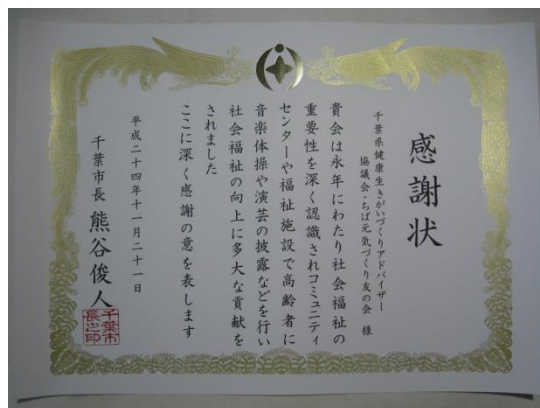 感謝状
千葉県健康生きがいづくりアドバイザー
協議会・ちば元気づくり友の会 様
貴会は永年にわたり社会福祉の
重要性を深く認識されコミュニティ
センターや福祉施設で高齢者に
音楽体操や演芸の披露などを行い
社会福祉の向上に多大な貢献を
されました
ここに深く感謝の意を表します
平成二十四年十一月二十一日
千葉市長 熊谷俊人
千葉市
長之印